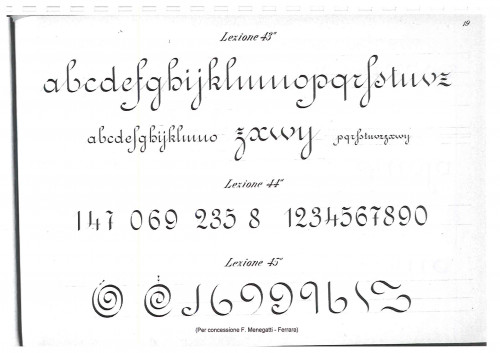 19
Lezione 43ª
abcdefghijklmnopqrſstuvz
abcdefghijklmno zxwy pqrſstuvzxwy
Lezione 44ª
147 069 235 8 1234567890
Lezione 45ª
(Per concessione F. Menegatti - Ferrara)